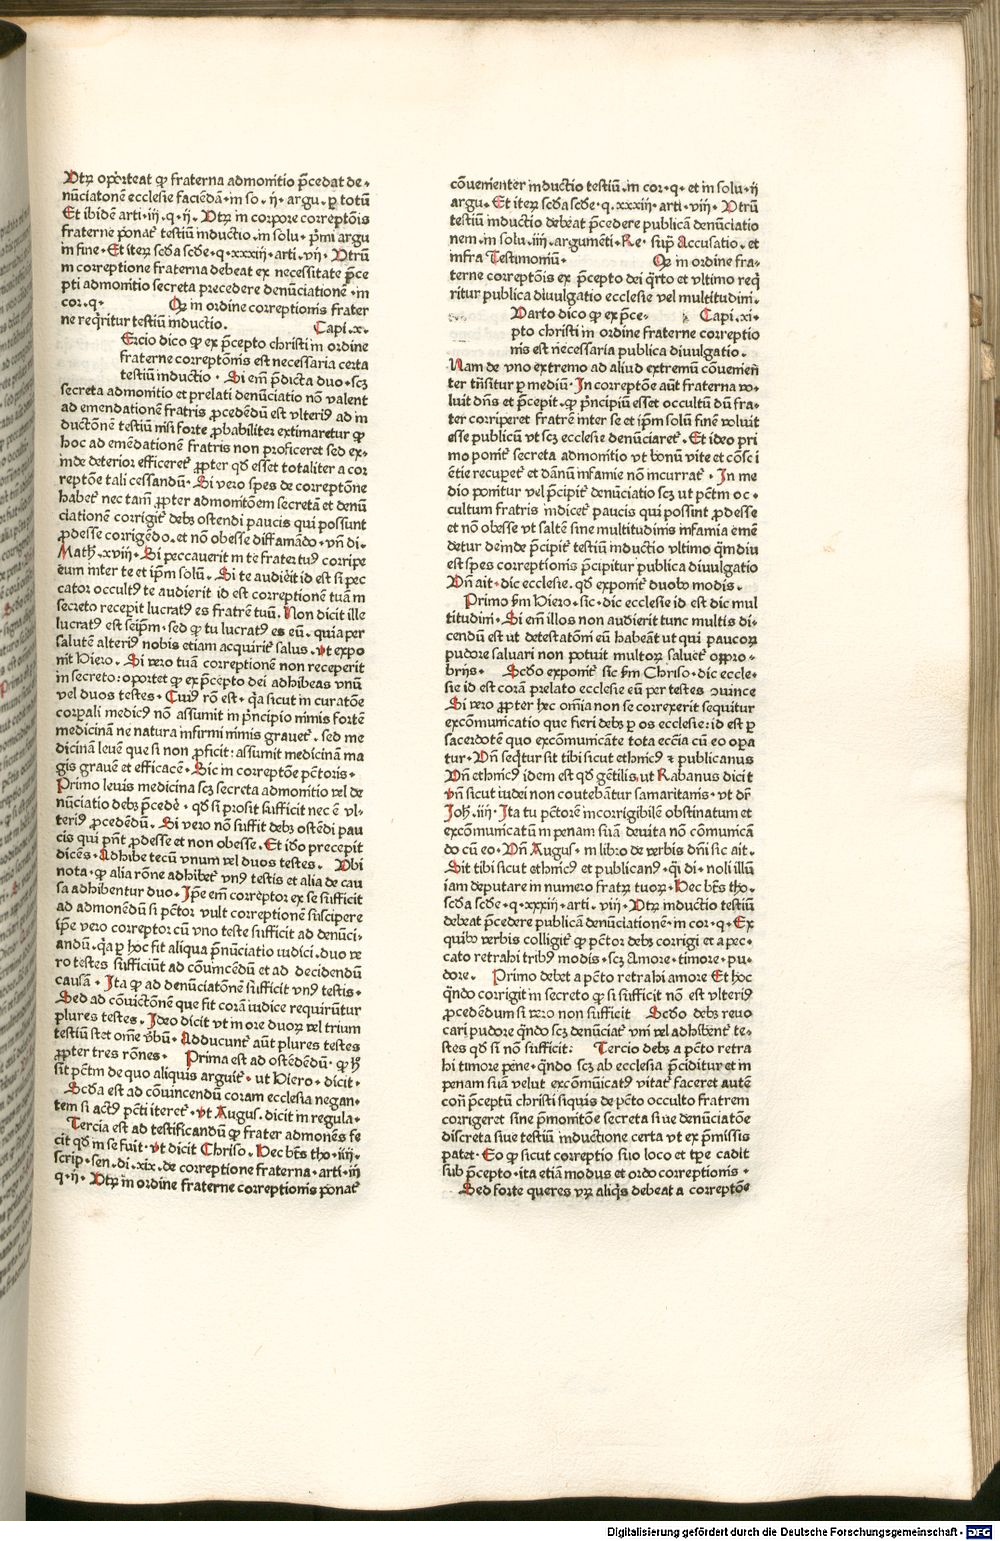 Vtꝝ oporteat ꝙ fraterna admonitio p̄cedat de-
nūciatonē ecclesie faciēdā · in so . ij · argu . ꝑ totū
Et ibidē arti · iij · q · ij · Vtꝝ in corpore correptōis
fraterne ponat᷑ testiū inductio . in solu · pͥmi argu
in fine · Et iteꝝ scd̄a scd̄e · q · xxxiij · arti . vij · Vtrū
in correptione fraterna debeat ex necessitate p̄ce
pti admonitio secreta precedere denūciationē · in
cor · q · Qꝛ in ordine correptionis frater
ne reqͥritur testiū inductio . Capi . x ·
Ercio dico ꝙ ex p̄cepto christi in ordine
fraterne correptōnis est necessaria certa
testiū inductio · Si em̄ p̄dicta duo · scꝫ
secreta admonitio et prelati denūciatio nō valent
ad emendationē fratris ꝓcedēdū est vlteriꝰ ad in
ductōnē testiū nisi forte ꝓbabiliter extimaretur ꝙ
hoc ad emēdationē fratris non proficeret sed ex-
inde deterior efficeret᷑ ꝓpter qd̄ esset totaliter a cor
reptōe tali cessandū · Si vero spes de correptōne
habet᷑ nec tam̄ ꝓpter admonitōem secretā et denū
ciationē corrigit᷑ debꝫ ostendi paucis qui possunt
ꝓdesse corrigēdo . et nō obesse diffamādo · vn̄ di ·
Math̄ . xviij · Si peccauerit in te frater tuꝰ corripe
eum inter te et ip̄m solū . Si te audierit id est si pec
cator occultꝰ te audierit id est correptionē tuā in
secreto recepit lucratꝰ es fratrē tuū . Non dicit ille
lucratꝰ est seip̄m · sed ꝙ tu lucratꝰ es eū . quia per
salutē alteriꝰ nobis etiam acquirit᷑ salus . vt expo
nit Hiero . Si vero tuā correptionē non receperit
in secreto : oportet ꝙ ex p̄cepto dei adhibeas vnū
vel duos testes · Cuiꝰ rō est · qͥa sicut in curatōe
corꝑali medicꝰ nō assumit in pͥncipio nimis fortē
medicinā ne natura infirmi nimis grauet᷑ . sed me
dicinā leuē que si non ꝓficit : assumit medicinā ma
gis grauē et efficacē · Sic in correptōe pctōris ·
Primo leuis medicina scꝫ secreta admonitio vel de
nūciatio debꝫ p̄cedē · qd̄ si prosit sufficit nec ē vl-
teriꝰ ꝓcedēdū . Si vero nō suffit debꝫ ostēdi pau
cis qui pn̄t ꝓdesse et non obesse . Et iō precepit
dicēs · Adhibe tecū vnum vel duos testes . Vbi
nota · ꝙ alia rōne adhibet᷑ vnꝰ testis et alia de cau
sa adhibentur duo · Ip̄e em̄ correptor ex se sufficit
ad admonēdū si pctōr vult correptionē suscipere
ip̄e vero correptor cū vno teste sufficit ad denūci-
andū . qͥa ꝑ hoc fit aliqua p̄nūciatio iudici . duo ve
ro testes sufficiūt ad cōuincēdū et ad decidendū
causā · Ita ꝙ ad denūciatōnē sufficit vnꝰ testis ·
Sed ad cōuictōnē que fit corā iudice requirūtur
plures testes . Ideo dicit vt in ore duoꝝ vel trium
testiū stet om̄e v̄bū · Adducunt᷑ aūt plures testes
ꝓpter tres rōnes · Prima est ad ostēdēdū · ꝙ hͦ
sit pctm̄ de quo aliquis arguit᷑ · ut Hiero · dicit ·
Scd̄a est ad cōuincendū coram ecclesia negan-
tem si actꝰ pcti iteret᷑ . vt Augus . dicit in regula ·
Tercia est ad testificandū ꝙ frater admonēs fe
cit qd̄ in se fuit · vt dicit Chriso . Hec bt̄s tho · iiij ·
scrip · sen . di . xix . de correptione fraterna · arti · iij
q · ij · Vtꝝ in ordine fraterne correptionis ponat᷑
cōuenienter inductio testiū . in cor · q · et in solu · ij
argu . Et iteꝝ scd̄a scd̄e · q . xxxiij · arti · viij · Vtrū
testiū inductio debeat p̄cedere publicā denūciatio
nem · in solu . iiij . argumēti · Re · supͣ Accusatio . et
infra Testimoniū · Qꝛ in ordine fra-
terne correptōis ex p̄cepto dei qͣrto et vltimo reqͥ
ritur publica diuulgatio ecclesie vel multitudini .
Varto dico ꝙ ex p̄ce- Capi . xi ·
pto christi in ordine fraterne correptio
nis est necessaria publica diuulgatio .
Nam de vno extremo ad aliud extremū cōueniēn
ter tn̄situr ꝑ mediū · In correptōe aūt fraterna vo-
luit dn̄s et p̄cepit . ꝙ pͥncipiū esset occultū dū fra-
ter corriperet fratrē inter se et ip̄m solū finē voluit
esse publicū vt scꝫ ecclesie denūciaret᷑ . Et ideo pri
mo ponit᷑ secreta admonitio vt bonū vite et cōsci
ētie recuꝑet᷑ et dānū infamie nō incurrat᷑ · In me
dio ponitur vel p̄cipit᷑ denūciatio scꝫ ut pctm̄ oc ·
cultum fratris indicet᷑ paucis qui possint ꝓdesse
et nō obesse vt saltē sine multitudinis infamia emē
detur deinde p̄cipit᷑ testiū inductio vltimo qm̄diu
est spes correptionis p̄cipitur publica diuulgatio
Vn̄ ait · dic ecclesie . qd̄ exponit᷑ duobꝰ modis .
Primo ẜm Hiero · sic · dic ecclesie id est dic mul
titudini · Si em̄ illos non audierit tunc multis di-
cendū est ut detestatōni eū habeāt ut qui paucoꝝ
pudore saluari non potuit multoꝝ saluet᷑ oppro-
brijs · Scd̄o exponit᷑ sic ẜm Chriso · dic eccle-
sie id est corā prelato ecclesie eū per testes ↄuince
Si vero ꝓpter hec om̄ia non se correxerit sequitur
excōmunicatio que fieri debꝫ ꝑ os ecclesie : id est ꝑ
sacerdotē quo excōmunicāte tota eccīa cū eo opa
tur · Vn̄ seqͥtur sit tibi sicut ethnicꝰ ⁊ publicanus
Vn̄ ethnicꝰ idem est qd̄ gētilis ut Rabanus dicit
vn̄ sicut iudei non coutebātur samaritanis · vt dr̄
Joh̄ . iiij · Ita tu pctōrē incorrigibilē obstinatum et
excōmunicatū in penam suā deuita nō cōmunicā
do cū eo · Vn̄ Augus · in libro de verbis dn̄i sic ait .
Sit tibi sicut ethnicꝰ et publicanꝰ · qͥi di · noli illū
iam deputare in numero fratꝝ tuoꝝ · Hec bt̄s tho .
scd̄a scd̄e · q · xxxiij · arti . viij · Vtꝝ inductio testiū
debeat p̄cedere publicā denūciationē · in cor · q · Ex
quibꝰ verbis colligit᷑ ꝙ pctōr debꝫ corrigi et a pec ·
cato retrahi tribꝰ modis · scꝫ Amore · timore · pu-
dore . Primo debet a pcto retrahi amore Et hoc
qn̄do corrigit᷑ in secreto ꝙ si sufficit nō est vlteriꝰ
ꝓcedēdum si vero non sufficit Scd̄o debꝫ reuo
cari pudore qn̄do scꝫ denūciat᷑ vni vel adhibent᷑ te-
stes qd̄ si nō sufficit : Tercio debꝫ a pcto retra
hi timore pene · qn̄do scꝫ ab ecclesia p̄ciditur et in
penam suā velut excōmūicatꝰ vitat᷑ faceret autē
con̄ p̄ceptū christi si quis de pcto occulto fratrem
corrigeret sine p̄monitōe secreta siue denūciatōe
discreta siue testiū inductione certa vt ex p̄missis
patet · Eo ꝙ sicut correptio suo loco et tꝑe cadit
sub p̄cepto · ita etiā modus et ordo correptionis ·
Sed forte queres vꝝ aliqͥs debeat a correptōe
Digitalisierung gefördert durch die Deutsche Forschungsgemeinschaft · DFG